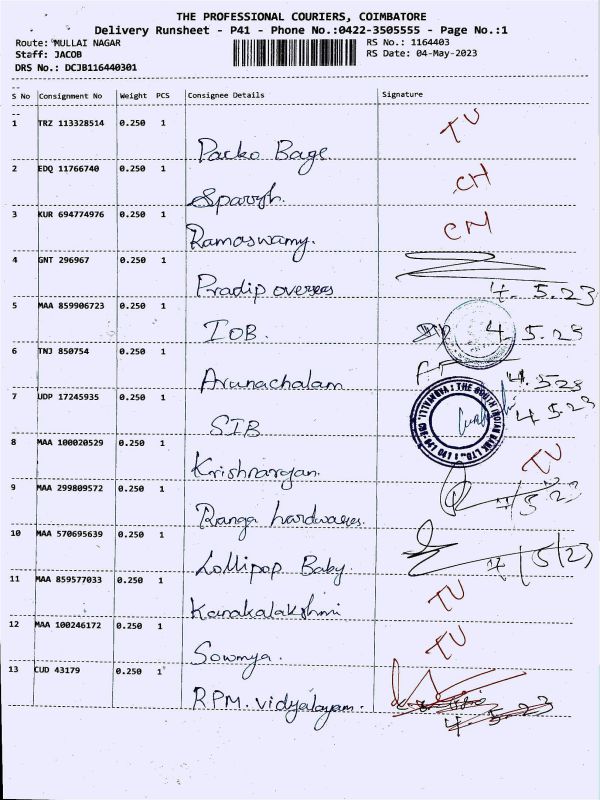 THE PROFESSIONAL COURIERS, COIMBATORE
Delivery Runsheet - P41 - Phone No.:0422-3505555 - Page No.:1
Route: MULLAI NAGAR RS No.: 1164403
Staff: JACOB RS Date: 04-May-2023
DRS No.: DCJB116440301
S No Consignment No Weight PCS Consignee Details Signature
1 TRZ 113328514 0.250 1 TU
Packo Bage
2 EDQ 11766740 0.250 1 CH
3 KUR 694774976 0.250 1 CM
Ramaswamy.
4 GNT 296967 0.250 1
Pradip overses 4. 5.23
5 MAA 859906723 0.250 1
IOB. 4.5.23
6 TNJ 850754 0.250 1
Arunachalam 4.523
7 UDP 17245935 0.250 1 4 5.23
SIB THE SOUTH INDIAN BANK LTD.
8 MAA 100020529 0.250 1 TU
9 MAA 299809572 0.250 1
Ranga hardwares. 4/5 23
10 MAA 570695639 0.250 1
Lollipop Baby. 4/5/23
11 MAA 859577033 0.250 1 TU
Kanakalakshmi
12 MAA 100246172 0.250 1 TU
Sowmya.
13 CUD 43179 0.250 1
R.P.M. vidyalayam. 4 5 23